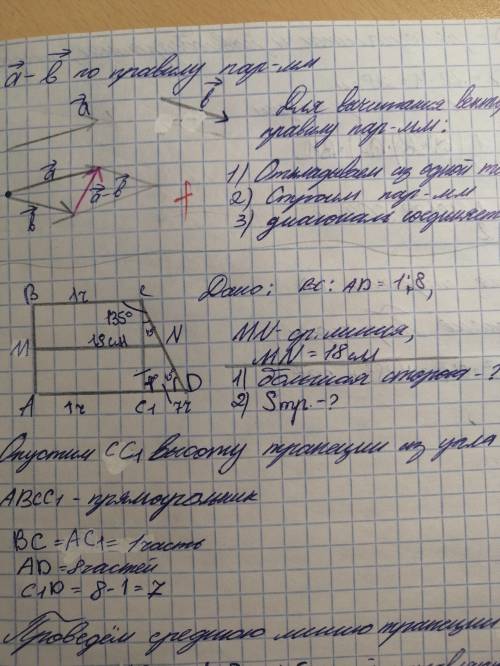 a - b по правилу пар-мм
a
b
Для вычитания вект
правилу пар-мм:
a
a - b
b
1) Откладываем из одной
2) Строим пар-мм
3) диагональ соединяет
B 1ч C
135°
M 18см N
A 1ч C1 7ч D
Дано: BC : AD = 1:8,
MN - ср. линия,
MN = 18 см
1) большая сторона - ?
2) Sтр. - ?
Опустим CC1 высоту трапеции из угла
ABCC1 - прямоугольник
BC = AC1 = 1 часть
AD = 8 частей
C1D = 8 - 1 = 7
Проведём среднюю линию трапеции